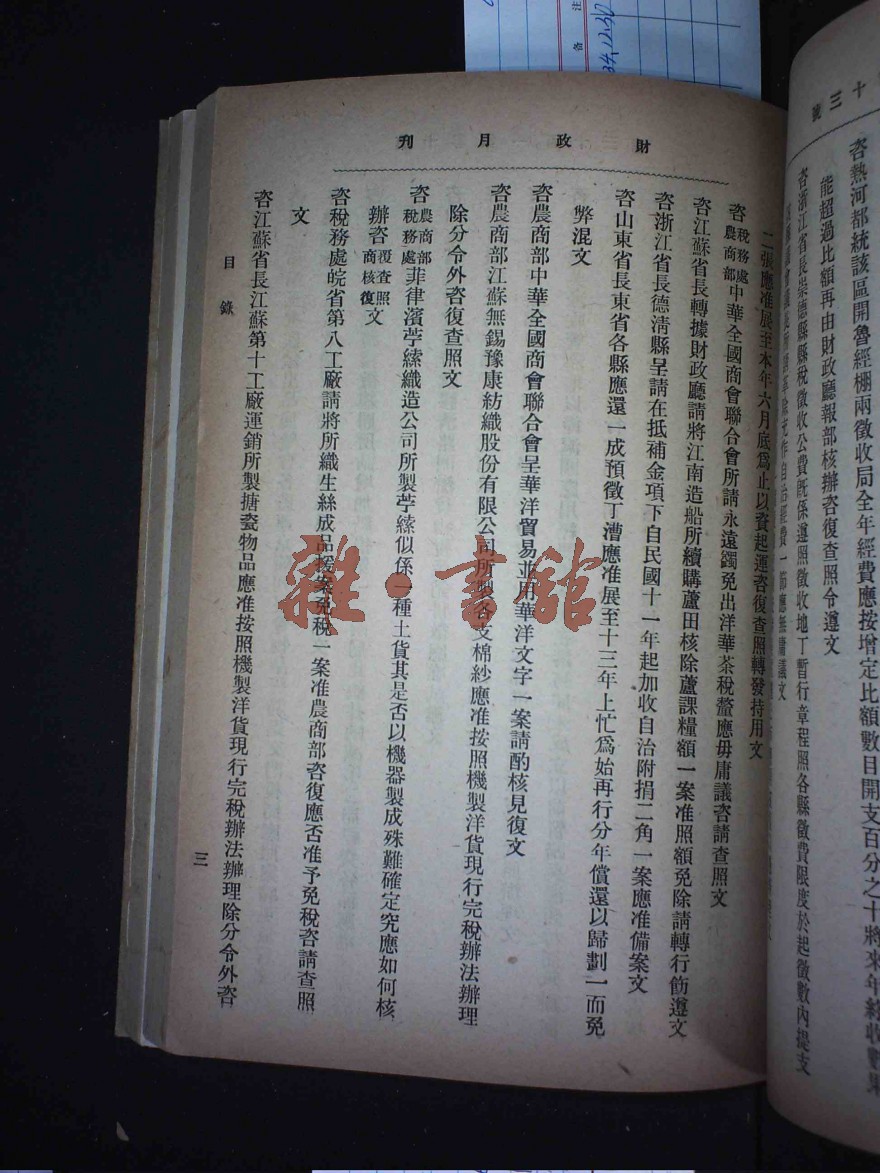 十三號
咨熱河都統該區開魯經棚兩徵收局全年經費應按增定比額數目開支百分之十將來年終收數果
能超過比額再由財政廳報部核辦咨復查照令遵文
咨浙江省長崇德縣縣稅徵收公費旣係遵照徵收地丁暫行章程照各縣徵費限度於起徵數內提支
財政月刊
二張應准展至本年六月底爲止以資起運咨復查照轉發持用文
咨稅務處農商部中華全國商會聯合會所請永遠蠲免出洋華茶稅釐應毋庸議咨請查照文
咨江蘇省長轉據財政廳請將江南造船所續購蘆田核除蘆課糧額一案准照額免除請轉行飭遵文
咨浙江省長德清縣呈請在抵補金項下自民國十一年起加收自治附捐二角一案應准備案文
咨山東省長東省各縣應還一成預徵丁漕應准展至十三年上忙爲始再行分年償還以歸劃一而免
弊混文
咨農商部中華全國商會聯合會呈華洋貿易並用華洋文字一案請酌核見復文
咨農商部江蘇無錫豫康紡織股份有限公司所製各支棉紗應准按照機製洋貨現行完稅辦法辦理
除分令外咨復查照文
咨農商部稅務處菲律濱苧縤織造公司所製苧縤似係一種土貨其是否以機器製成殊難確定究應如何核
辦咨復查照商核復文
咨稅務處皖省第八工廠請將所織生絲成品援案免稅一案准農商部咨復應否准予免稅咨請查照
文
咨江蘇省長江蘇第十工廠運銷所製搪瓷物品應准按照機製洋貨現行完稅辦法辦理除分令外咨
目錄
三
雜·書館
備注